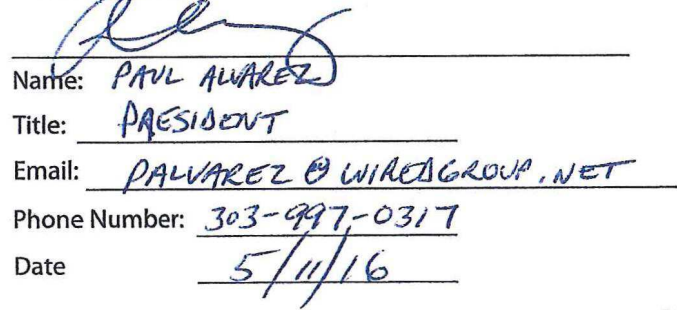 Name: PAUL ALVAREZ
Title: PRESIDENT
Email: PALVAREZ@WIREDGROUP.NET
Phone Number: 303-997-0317
Date 5/11/16